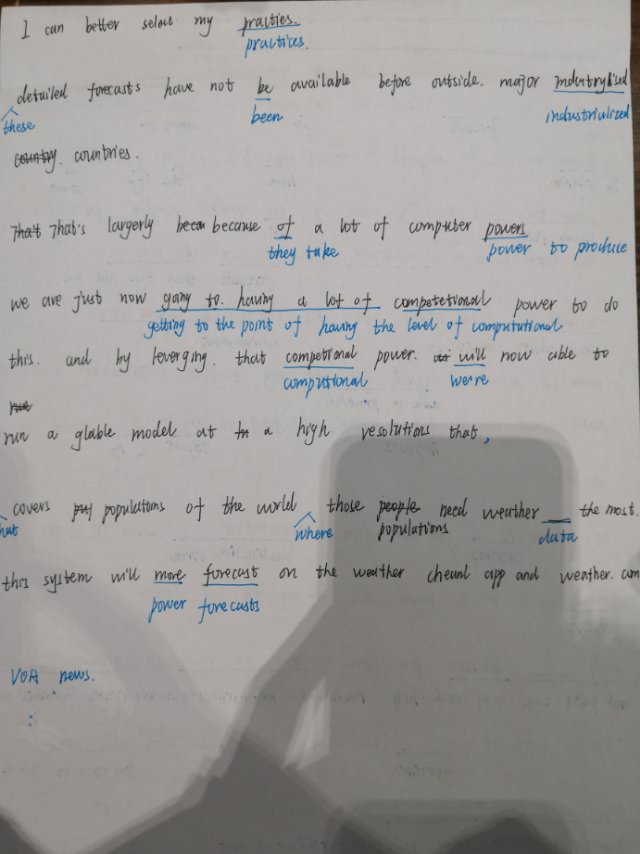 I can better select my practies.
practices.
detailed forecasts have not be available before outside. major industrylised
these been industrialized
country. countries.
That That's largely becau because of a lot of computer powers
they take power to produce
we are just now going to. having a lot of competetional power to do
getting to the point of having the level of compututional
this. and by leverging. that competional power. will now able to
computional we're
run
run a glable model at a high resolutions that,
covers populations of the world those people need weather the most.
hat where populations data
this system will more forecast on the weather cheunl app and weather. com
power forecasts
VOA news.